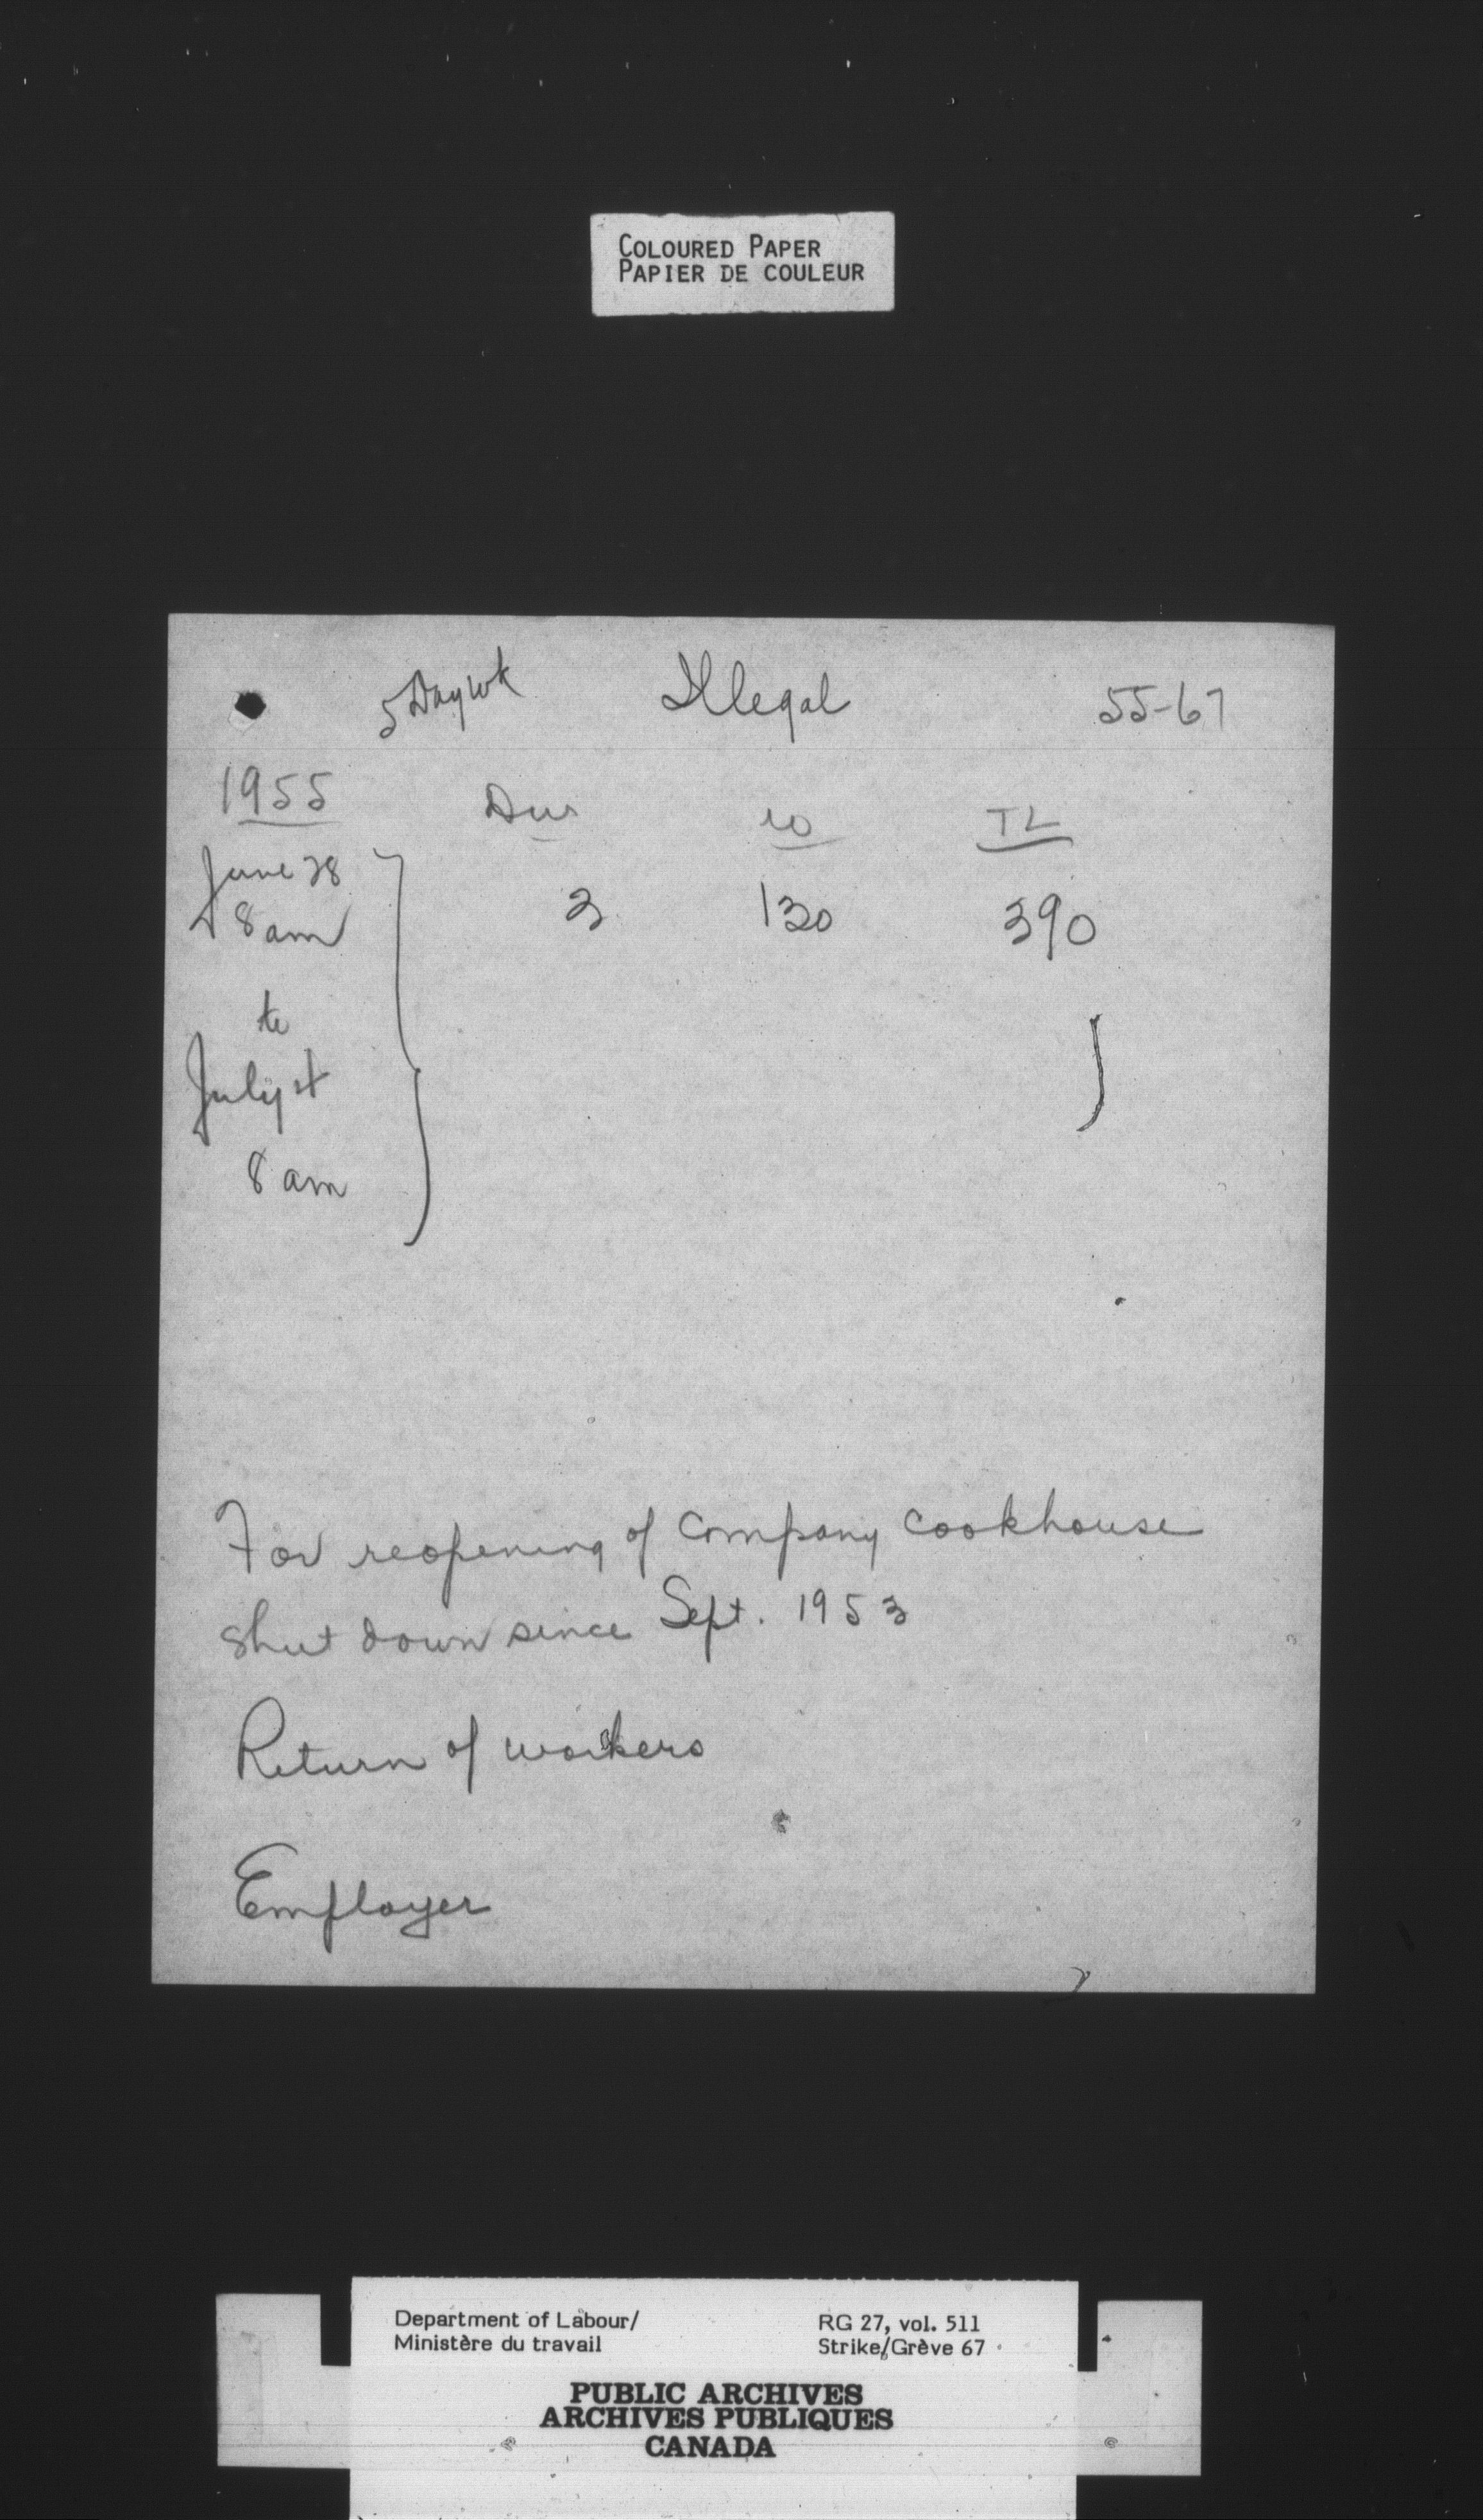 COLOURED PAPER
PAPIER DE COULEUR
5 Day wk Illegal 55-67
1955 Dur w TL
June 28
8 am 3 130 390
to
July 4
8 am
For reopening of Company Cookhouse
shut down since Sept. 1953
Return of workers
Employer
Department of Labour/ RG 27, vol. 511
Ministère du travail Strike/Grève 67
PUBLIC ARCHIVES
ARCHIVES PUBLIQUES
CANADA